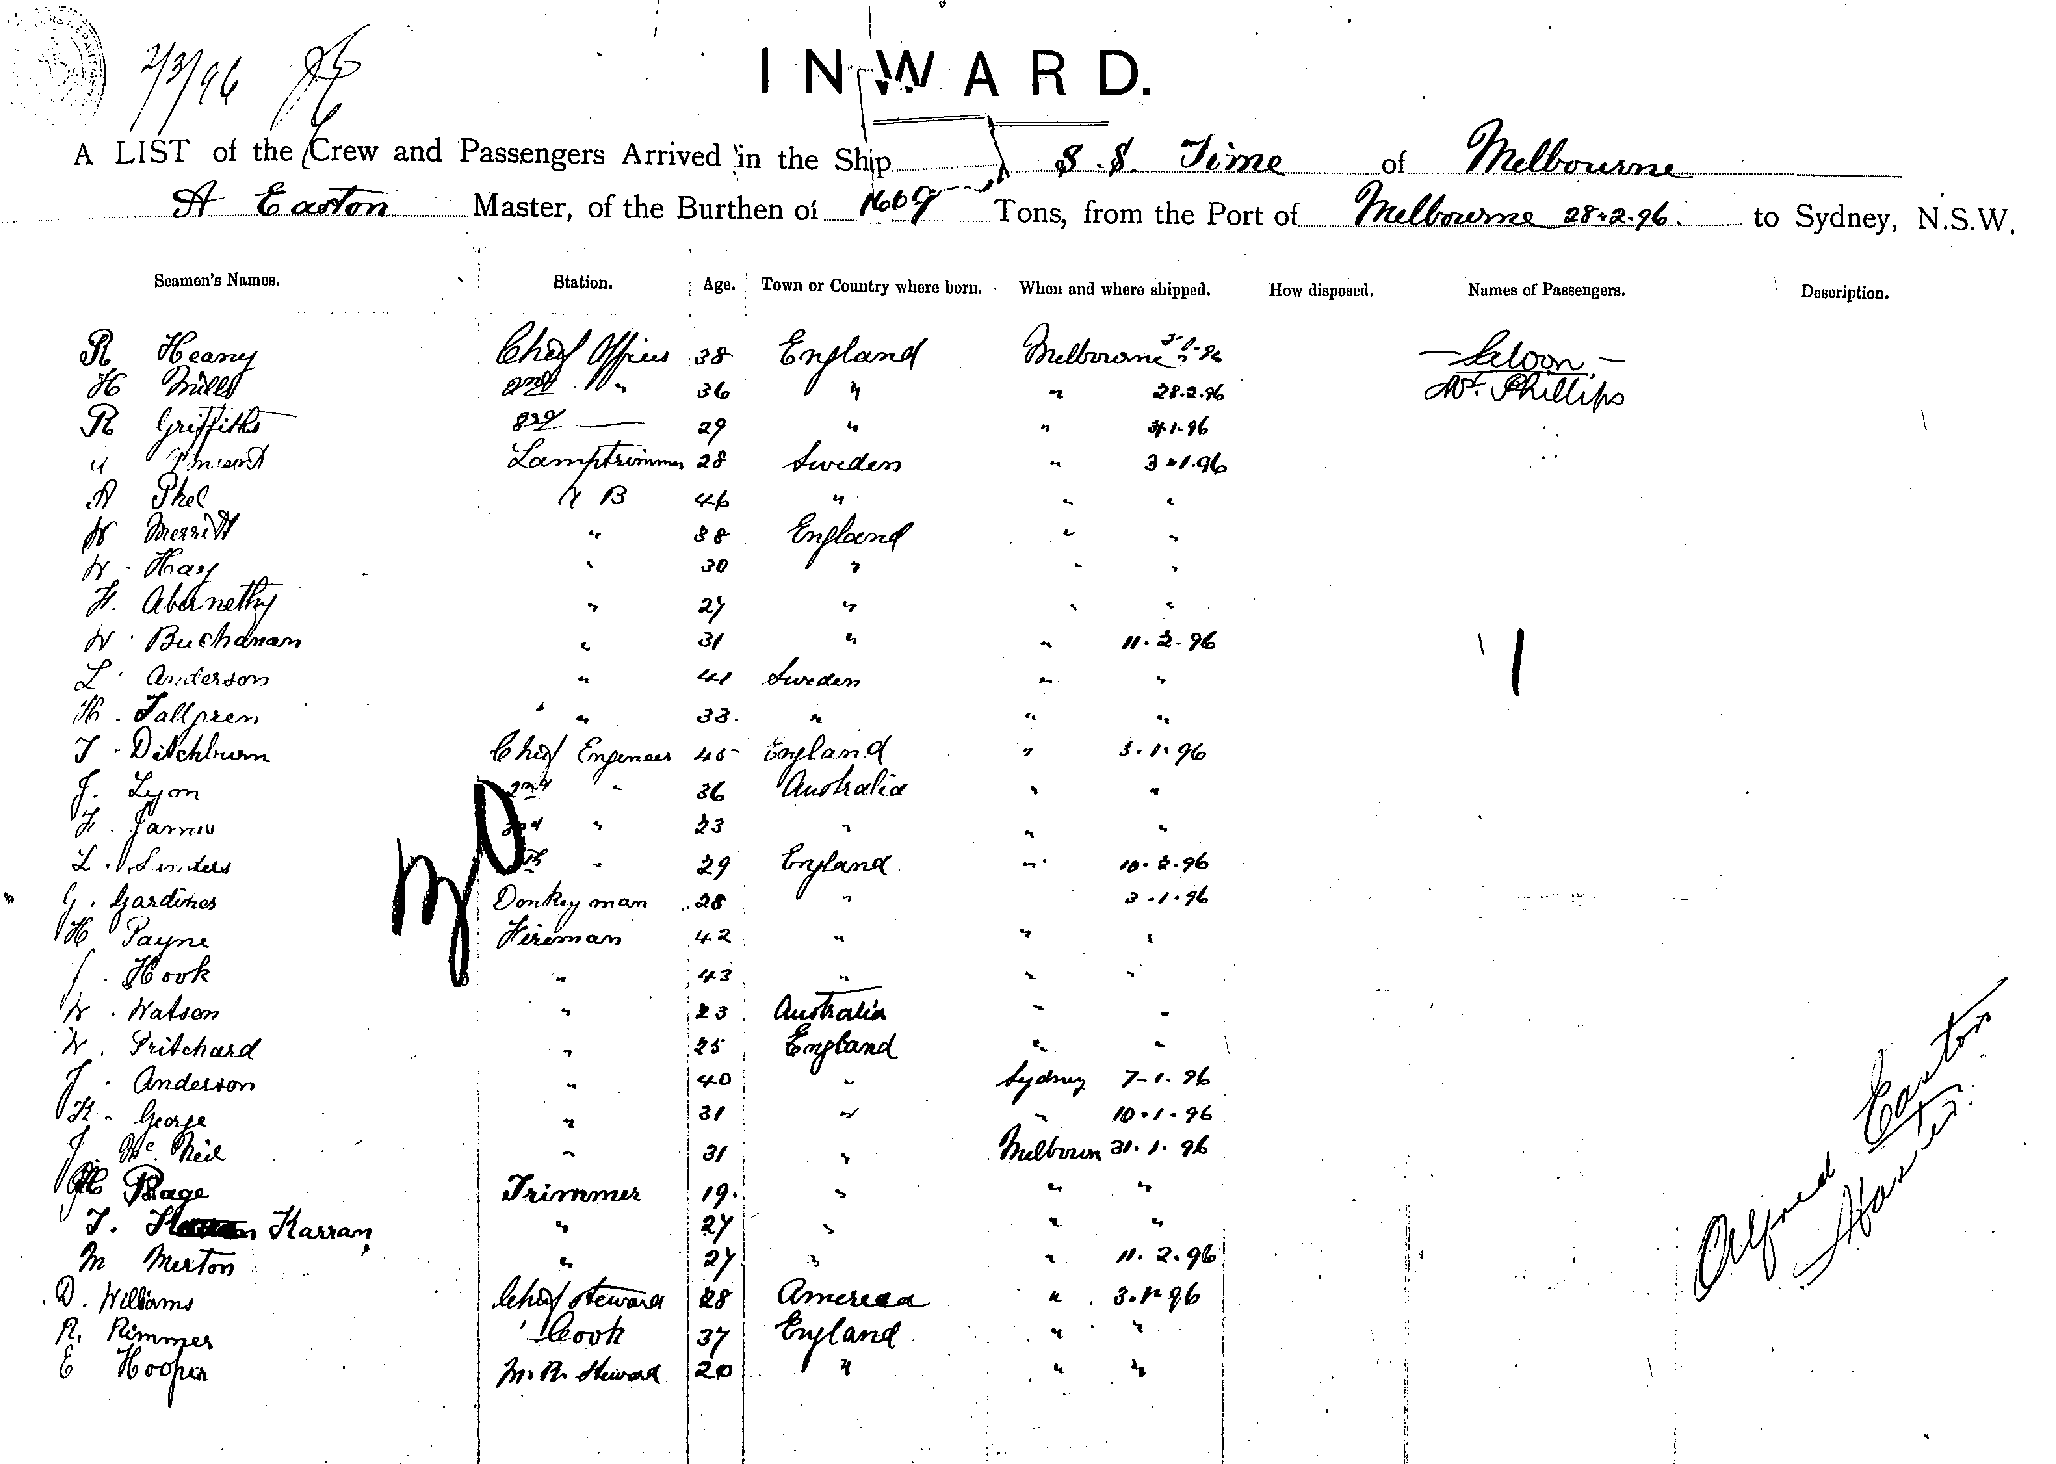 2/3/96
INWARD.
A LIST of the Crew and Passengers Arrived in the Ship S.S. Time of Melbourne
A Easton Master, of the Burthen of Tons, from the Port of Melbourne 28.2.96. to Sydney, N.S.W.
Seamen's Names. Station. Age. Town or Country where born. When and where shipped. How disposed. Names of Passengers. Description.
R Heany Chief Officer 38 England Melbourne Saloon
H Mills 2nd " 36 " " 28.2.96 Mr. Phillips
R Griffiths 3rd — 29 " " 96
Lamptrimmer 28 Sweden " 3.1.96
A Phel A B 46 " " "
W Merritt " 38 England " "
W. Hay " 30 " " "
F. Abernethy " 27 " " "
W. Buchanan " 31 " " 11.2.96
L. Anderson " 41 Sweden " "
H. Tallpren " 33. " " "
T. Ditchburn Chief Engineer 45 England " 3.1.96
J. Lyon 2nd " 36 Australia " "
F. 3rd " 23 " " "
L. Sinders " 29 England " 10.2.96
G. Gardiner Donkeyman 28 " 3.1.96
H Payne Fireman 42 " " "
J. Hook " 43 " " "
W. Watson " 23 Australia " "
W. Pritchard " 25 England " "
J. Anderson " 40 " Sydney 7-1.96
K. George " 31 " " 10.1.96
J. Mc Neil " 31 " Melbourn 31.1.96
H Page Trimmer 19. " " "
T. Karran, " 27 " " "
M Merton " 27 " " 11.2.96
D. Williams Chief Steward 28 America " 3.1.96
R. Rimmer Cook 37 England " "
E Hooper M.R. Steward 20 " " "
Alfred Easton
Master